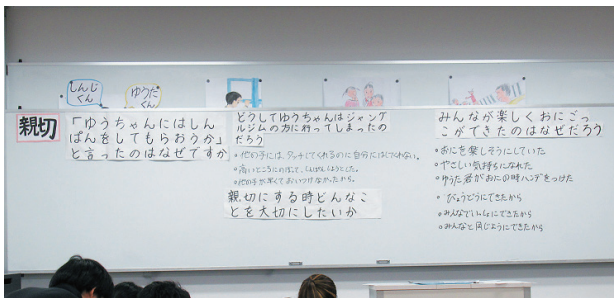 しんじ
くん
ゆうた
くん
親切
「ゆうちゃんにはしん
ぱんをしてもらおうか」
と言ったのはなぜですか
どうしてゆうちゃんはジャング
ルジムの方にわってしまったの
だろう
・他の子には、タッチしてくれるのに自分にはしてくれない。
・高いところにのぼって、しんぱんしようとした。
・他の子が早くておいつけなかったから。
親切にする時どんなこ
とを大切にしたいか
みんなが楽しくおにごっ
こができたのはなぜだろう
○おにを楽しそうにしていた
○やさしい気持ちになれた
○ゆうた君がおにの時ハンデをつけた
○びょうどうにできたから
○みんなでいっしょにできたから
○みんなと同じようにできたから